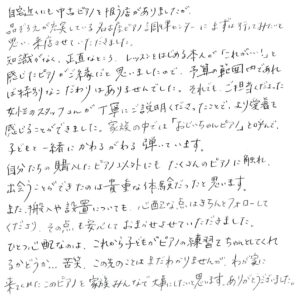 自宅近くにも中古ピアノを扱う店がありましたが、
品ぞろえが充実している名古屋ピアノ調律センターにまずは行ってみたいと
思い、来店させていただきました。
知識がなく、正直なところ、レッスンをはじめる本人が「これがいい!」と
感じたピアノがご縁だと思いましたので、予算の範囲内であれ
ば特別なこだわりはありませんでした。それでも、ご担当だった
女性のスタッフさんが丁寧にご説明くださったことで、より愛着を
感じることができました。家族の中では「おじいちゃんピアノ」と呼んで、
子どもと一緒にかわるがわる弾いています。
自分たちの購入したピアノ以外にもたくさんのピアノに触れ、
出会うことができたのは貴重な体験だったと思います。
また、搬入や設置についても、心配な点はきちんとフォローして
くださり、その点も安心しておまかせさせていただきました。
ひとつ心配なのは、これから子どもがピアノの練習をちゃんとしてくれ
るかどうか…苦笑、この先のことはまだわかりませんが、わが家に
来てくれたこのピアノを家族みんなで大事にしたいと思います。ありがとうございました。